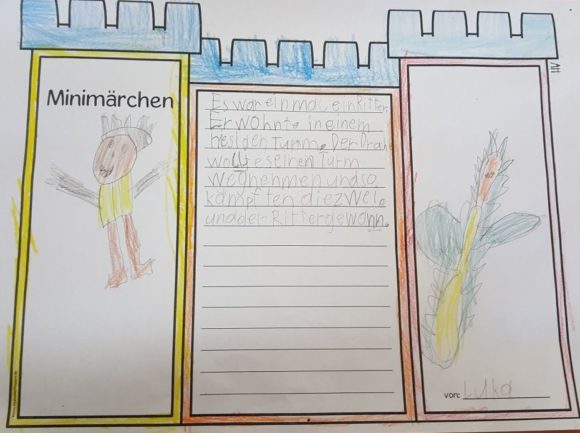 Minimärchen
Es war einmal ein Ritter.
Er wohnte in einem
hesigen Turm. Der Drache
wollte seinen Turm
wegnehmen und so
kämpften die zwei.
und der Ritter gewann.
von: Luka